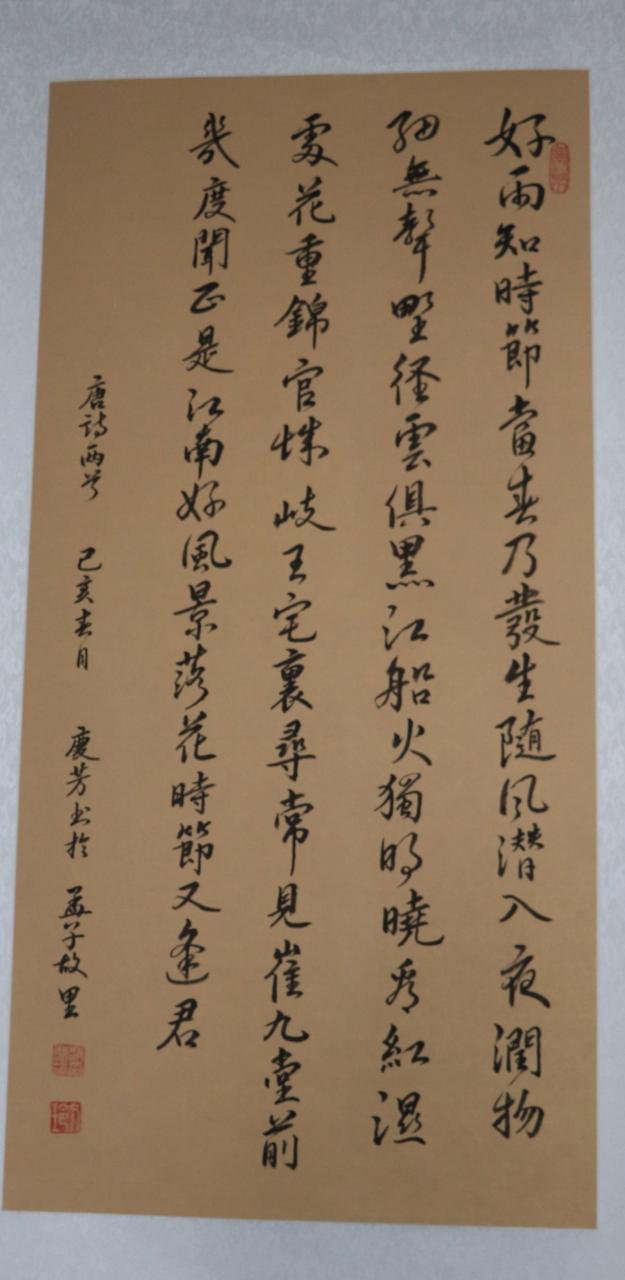 好雨知時節當春乃發生随风潜入夜潤物
細無聲野径雲俱黑江船火獨明曉看紅濕
處花重錦官城岐王宅裏尋常見崔九堂前
幾度聞正是江南好風景落花時節又逢君
唐詩两首 己亥春月 慶芳书於 孟子故里